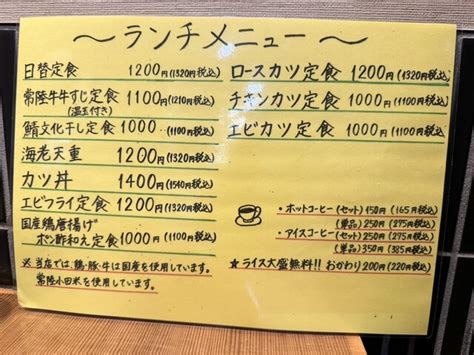 ～ランチメニュー～
日替定食 1200円(1320円税込)
常陸牛牛すじ定食 1100円(1210円税込)
(温玉付き)
鯖文化干し定食 1000円(1100円税込)
海老天重 1200円(1320円税込)
カツ丼 1400円(1540円税込)
エビフライ定食 1200円(1320税込)
国産鶏唐揚げ
ポン酢和え定食 1000円(1100円税込)
※当店では、鶏・豚・牛は国産を使用しています。
常陸小田米を使用しています。
ロースカツ定食 1200円(1320円税込)
チキンカツ定食 1000円(1100円税込)
エビカツ定食 1000円(1100円税込)
・ホットコーヒー(セット)150円(165円税込)
(単品)250円(275円税込)
・アイスコーヒー(セット)250円(275円税込)
(単品)350円(385円税込)
★ライス大盛無料!!おかわり200円(220円税込)